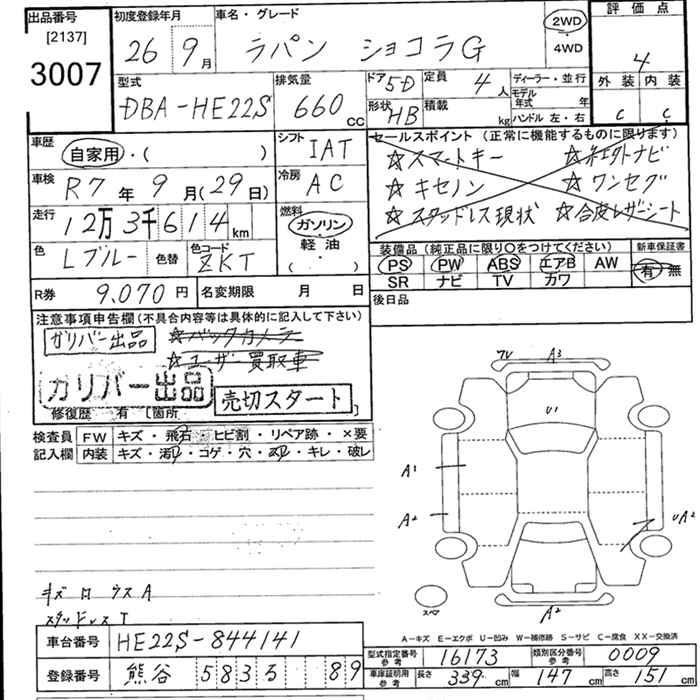 出品番号
[2137]
3007
初度登録年月
26 9月
車名・グレード
ラパン ショコラG
2WD
4WD
評価点
4
外装 内装
C C
型式
DBA-HE22S
排気量
660 CC
ドア 5D
形状 HB
定員 4人
積載 kg
ディーラー・並行
モデル年式 年
ハンドル 左・右
車歴
自家用・( )
シフト
IAT
車検
R7年 9月(29日)
冷房
AC
走行
12万3千614km
燃料
ガソリン
軽油
( ・ )
色
Lブルー
色替
色コード
ZKT
R券
9,070円
名変期限 月 日
セールスポイント (正常に機能するものに限ります)
☆スマートキー
☆キセノン
☆ワンセグ
☆スタッドレス現状
☆合皮レザーシート
装備品 (純正品に限り○をつけてください)
PS PW ABS エアB AW
SR ナビ TV カワ
新車保証書
有 無
後日品
注意事項申告欄 (不具合内容等は具体的に記入して下さい)
ガリバー出品
☆バックカメラ
☆ユーザー買取車
ガリバー出品
売切スタート
修復歴 有 [箇所 ]
検査員
記入欄
FW キズ・飛石 ヒビ割・リペア跡・×要
内装 キズ・・コゲ・穴・・キレ・破レ
A3
U1
A1
A2
UA2
A2
スペア
A-キズ E-エクボ U-凹み W-補修跡 S-サビ C-腐食 XX-交換済
車台番号
HE22S-844141
登録番号
熊谷 583 89
型式指定番号
参考
16173
類別区分番号
参考
0009
車庫証明用
参考
長さ 339cm
幅 147cm
高さ 151cm